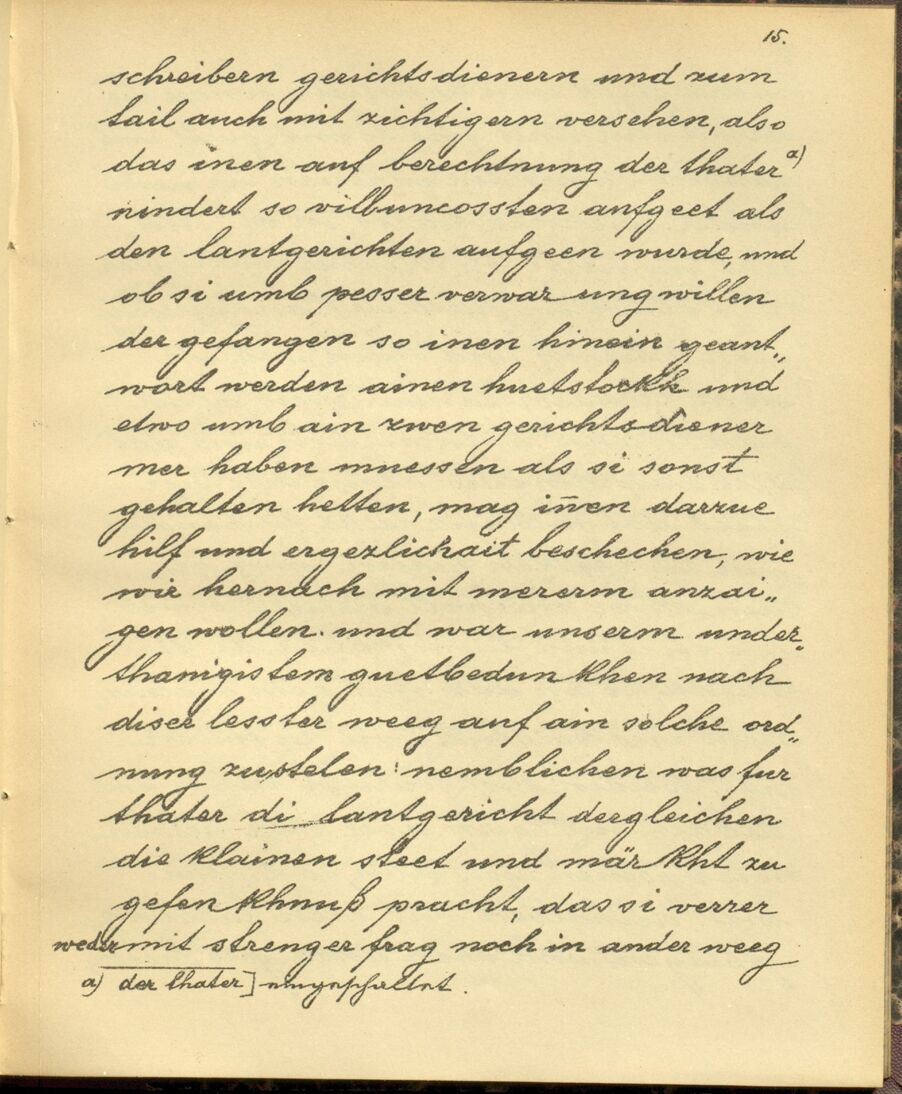 15.
schreibern gerichtsdienern und zum
tail auch mit zichtigern versehen, also
das inen auf berechtnung der thater a)
nindert so vill uncossten aufgeet als
den lantgerichten aufgeen wurde, und
ob si umb pesser verwarung willen
der gefangen so inen hinein geant„
wort werden ainen huetstockh und
etwo umb ain zwen gerichtsdiener
mer haben muessen als si sonst
gehalten hetten, mag iñen darzue
hilf und ergezlichait beschechen, wie
wir hernach mit mererm anzai„
gen wollen. und war unserm under„
thanigistem guetbedunkhen nach
diser lesster weeg auf ain solche ord„
nung zu stelen: nemblichen was fur
thater di lantgericht dergleichen
die klainen steet und märkht zu
gefenkhnuß pracht, das si verrer
weder mit strenger frag noch in ander weeg
a) der thater] eingeschaltet.